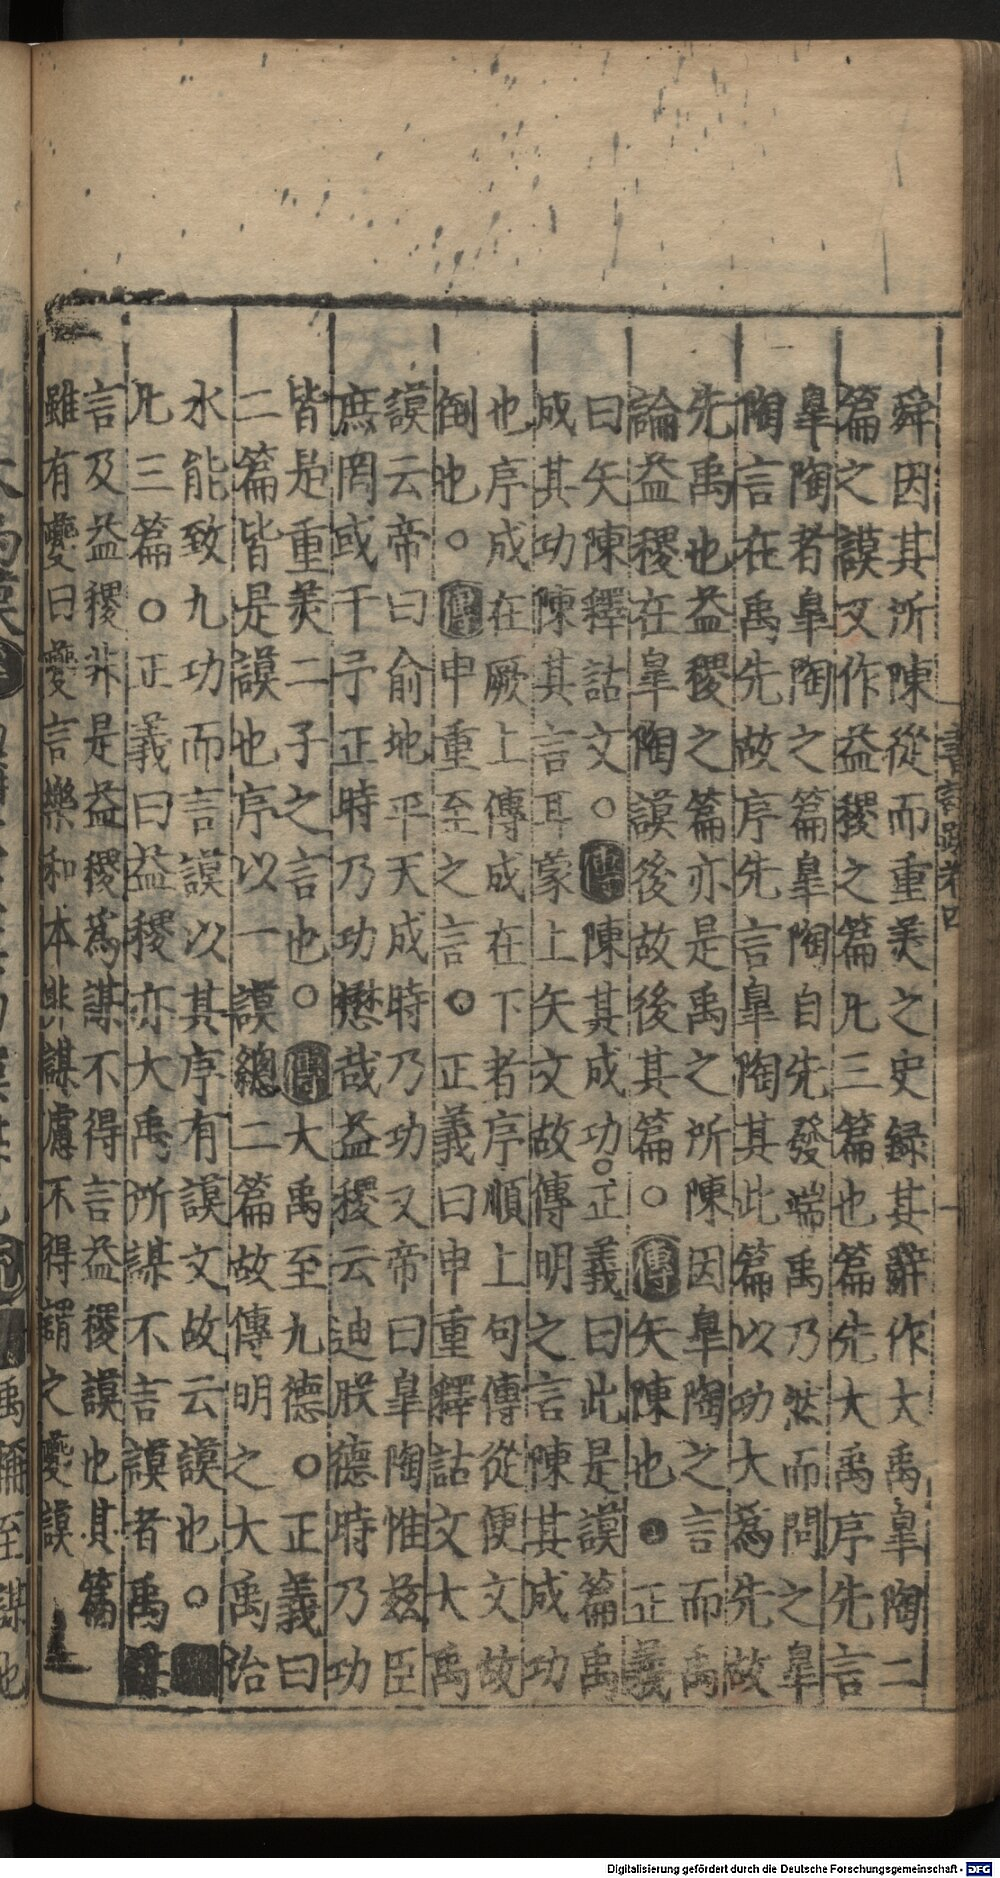 書註疏卷四
一
舜因其所陳從而重美之史録其辭作大禹皐陶二
篇之謨又作益稷之篇凡三篇也篇先大禹序先言
皐陶者皐陶之篇皐陶自先發端禹乃然而問之皐
陶言在禹先故序先言皐陶其此篇以功大為先故
先禹也益稷之篇亦是禹之所陳因皐陶之言而禹
論益稷在皐陶謨後故後其篇○傳矢陳也○正義
曰矢陳釋詁文○傳陳其成功○正義曰此是謨篇禹
成其功陳其言耳蒙上矢文故傳明之言陳其成功
也序成在厥上傳成在下者序順上句傳從便文故
倒也○傳申重至之言○正義曰申重釋詁文大禹
謨云帝曰俞地平天成時乃功又帝曰皐陶惟茲臣
庶罔或干予正時乃功懋哉益稷云迪朕德時乃功
皆是重美二子之言也○傳大禹至九德○正義曰
二篇皆是謨也序以一謨總二篇故傳明之大禹治
水能致九功而言謨以其序有謨文故云謨也○
凡三篇○正義曰益稷亦大禹所謀不言謨者禹謀
言及益稷非是益稷為謀不得言益稷謨也其篇
雖有夔曰夔言樂和本非謀慮不得謂之夔謨
禹稱至謀也
Digitalisierung gefördert durch die Deutsche Forschungsgemeinschaft - DFG